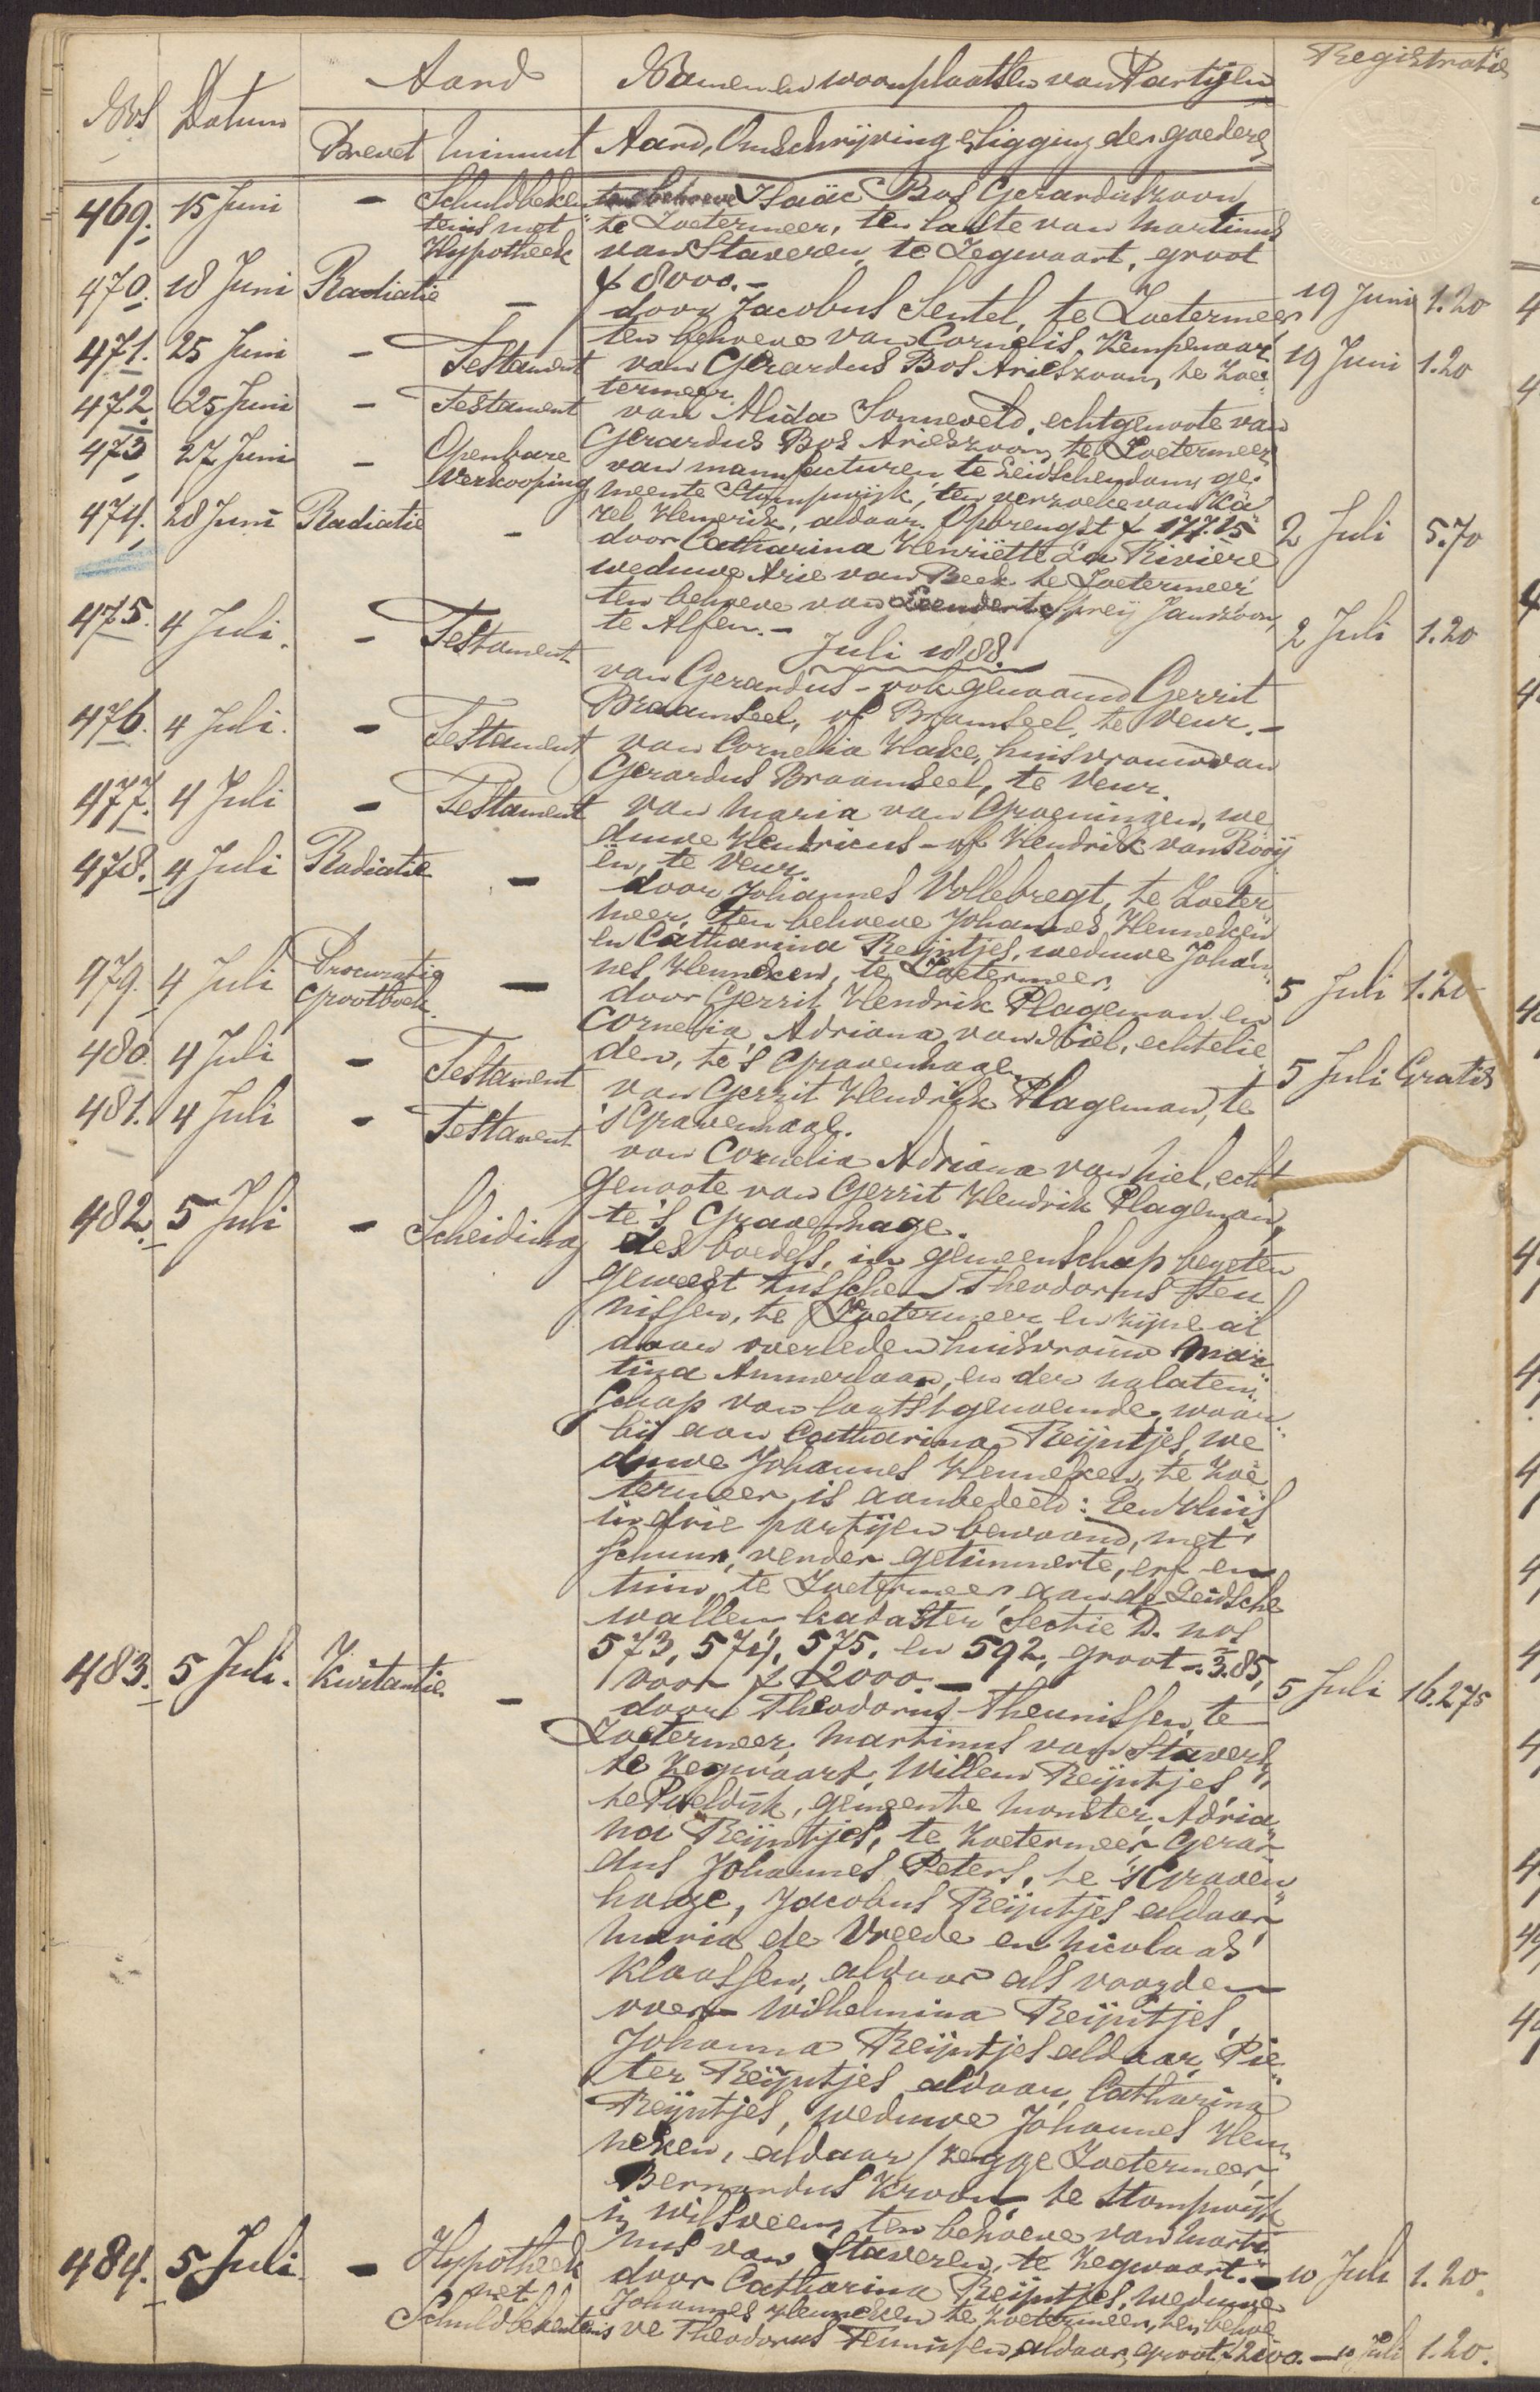 Nos Datum Aard Namen en woonplaatsen van Partijen Registratie
Brevet Minuut Aard, Omschrijving & ligging der goederen
469. 15 Juni - Schuldbeken ten behoeve Isaäc Bos Gerarduszoon,
tenis met te Zoetermeer, ten laste van Martinus
Hypotheek van Staveren, te Zegwaart, groot
f 8000.- 19 Juni 1.20
470. 18 Juni Radiatie - door Jacobus Sentel, te Zoetermeer
ten behoeve van Cornelis Kempenaar. 19 Juni 1.20
471. 25 Juni - Testament van Gerardus Bos Arieszoon, te Zoe„
termeer.
472. 25 Juni - Testament van Alida Sonneveld, echtgenoote van
Gerardus Bos Arieszoon, te Zoetermeer,
473 27 Juni - Openbare van manufacturen te Leidschendam, ge„
Verkooping, meente Stompwijk, ten verzoeke van Ka„
rel Hemerik, aldaar. Opbrengst f 177.25 2 Juli 5.70
474. 28 Juni Radiatie - door Catharina Henriëtte La Rivière
weduwe Arie van Beek te Zoetermeer
ten behoeve van Leendert Spreij Janszoon,
te Alfen.- 2 Juli 1.20
Juli 1888.
475. 4 Juli. - Testament van Gerardus - ook genaamd Gerrit
Braamseel, of Bramseel, te Veur.-
476. 4 Juli. - Testament van Cornelia Hake, huisvrouw van
Gerardus Braamseel, te Veur.
477. 4 Juli - Testament van Maria van Groeningen, we
duwe Hendricus - of Hendrik van Rooij
en, te Veur.
478. 4 Juli Radiatie - door Johannes Vollebregt, te Zoeter„
meer, ten behoeve Johannes Henneken
en Catharina Reijntjes, weduwe Johan„
nes Henneken, te Zoetermeer. 5 Juli 1.20
479. 4 Juli Procuratie Grootboek. - door Gerrit Hendrik Plageman en
Cornelia Adriana van Niel, echtelie„
den, te 's Gravenhage. 5 Juli Gratis
480. 4 Juli - Testament van Gerrit Hendrik Plageman, te
's Gravenhage.
481. 4 Juli - Testament van Cornelia Adriana van Niel, echt
genoote van Gerrit Hendrik Plageman,
te 's Gravenhage.
482. 5 Juli - Scheiding des boedels, in gemeenschap bezeten
geweest tusschen Theodorus Teu„
nissen, te Zoetermeer en zijne al
daar overleden huisvrouw Mar„
tina Ammerlaan, en der nalaten„
schap van laatstgenoemde, waar„
bij aan Catharina Reijntjes, we
duwe Johannes Henneken, te Zoe„
termeer, is aanbedeeld: Een Huis
in drie partijen bewoond, met
schuur, verder getimmerte, erf en
tuin, te Zoetermeer, aan de Leidsche
wallen, kadaster Sectie D. nos
573, 574, 575, en 592, groot -.3.85,
voor f 2000.- 5 Juli 16.275
483. 5 Juli. Kwitantie - door Theodorus Theunissen, te
Zoetermeer, Martinus van Staveren,
te Zegwaart, Willem Reijntjes,
te Poeldijk, gemeente Monster, Adria„
na Reijntjes, te Zoetermeer, Gerar„
dus Johannes Peters, te 's Graven„
hage, Jacobus Reijntjes aldaar,
Maria de Vreede en Nicolaas
Klaassen, aldaar als voogden
over Wilhelmina Reijntjes,
Johanna Reijntjes aldaar, Pie„
ter Reijntjes aldaar, Catharina
Reijntjes, weduwe Johannes Hen„
neken, aldaar / zegge Zoetermeer,
Bernardus Kroon te Stompwijk
in Wilsveen, ten behoeve van Marti
nus van Staveren, te Zegwaart.- 10 Juli 1.20.
484. 5 Juli. - Hypotheek door Catharina Reijntjes, weduwe
met Johannes Henneken te Zoetermeer, ten behoe
Schuldbekentenis ve Theodorus Teunissen, aldaar, groot f 2000.- 10 Juli 1.20.